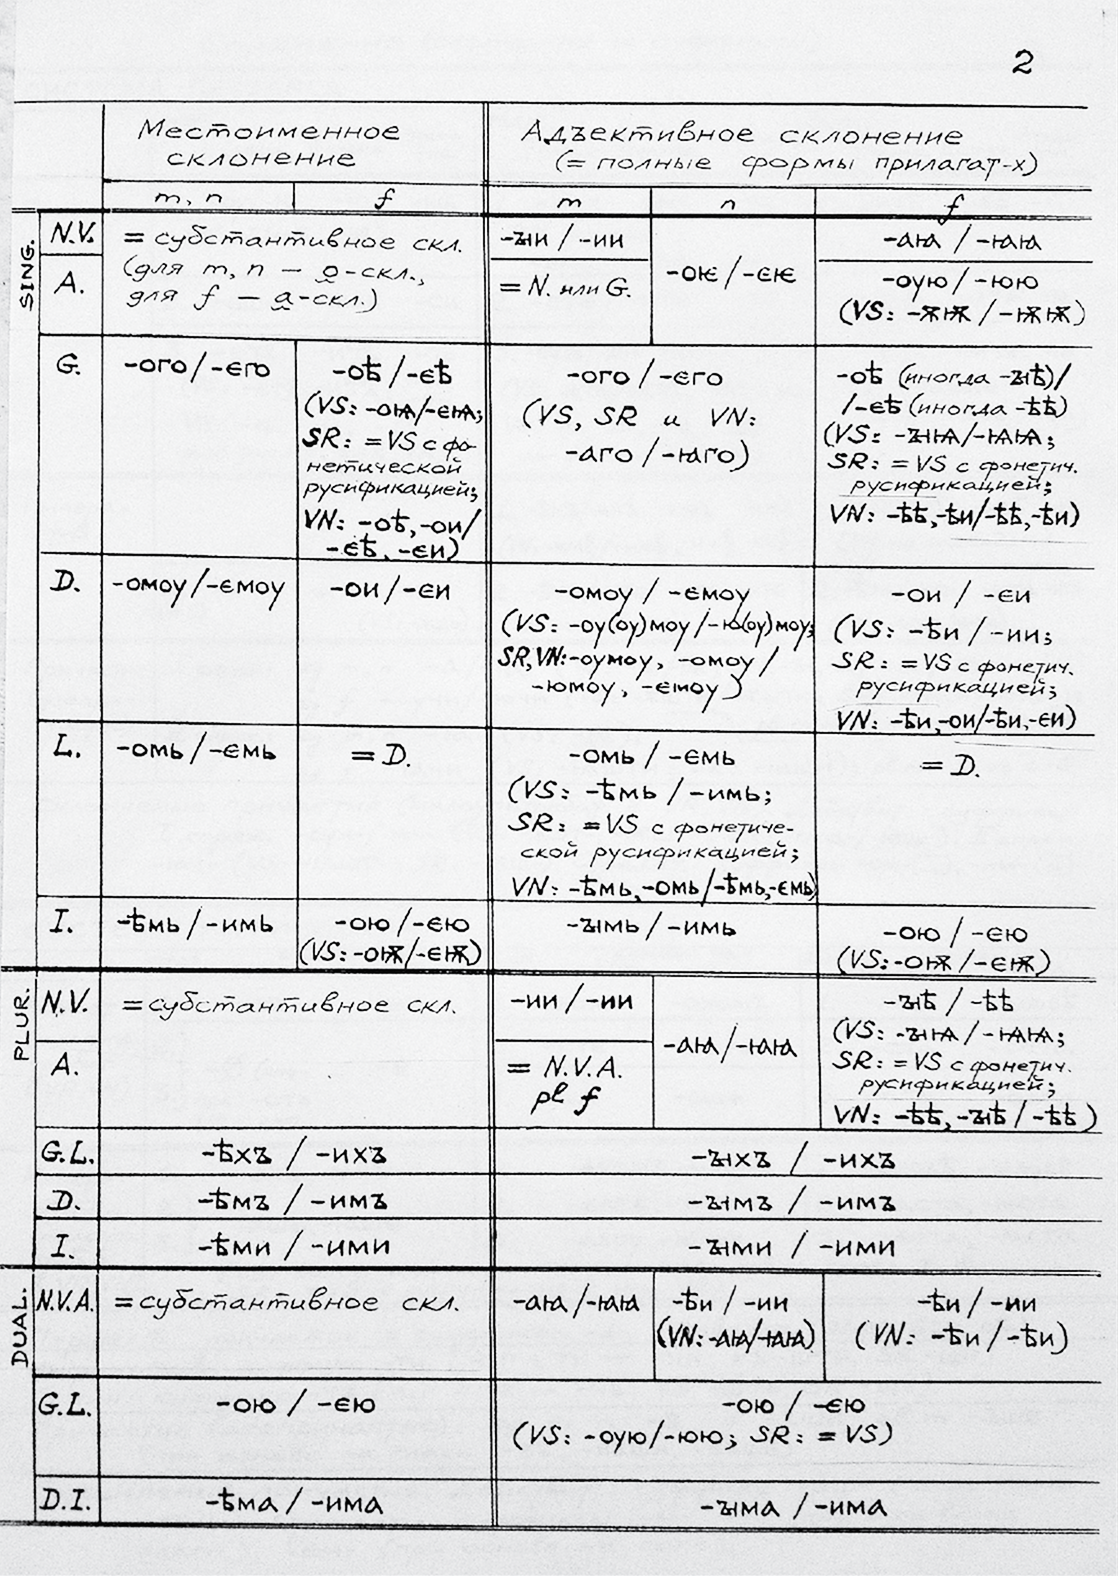 2
Местоименное
склонение
Адъективное склонение
(= полные формы прилагат-х)
m, n
f
m
n
f
SING.
N.V.
= субстантивное скл.
(для m, n – o-скл.,
для f – a-скл.)
-ъıи / -ии
-оѥ / -єѥ
-аꙗ / -ꙗꙗ
A.
= N. или G.
-оую / -юю
(VS: -ѫѭ / -ѭѭ)
G.
-ого / -єго
-оѣ / -єѣ
(VS: -оѩ/-єѩ;
SR: = VS с фо-
нетической
русификацией;
VN: -оѣ, -ои/
-єѣ, -єи)
-ого / -єго
(VS, SR и VN:
-аго / -ꙗго)
-оѣ (иногда -ъıѣ)/
/-єѣ (иногда -ѣѣ)
(VS: -ъıѩ/-ѩѩ;
SR: = VS с фонетич.
русификацией;
VN: -ѣѣ, -ѣи/-ѣѣ, -ѣи)
D.
-омоу / -ємоу
-ои / -єи
-омоу / -ємоу
(VS: -оу(оу)моу / -ю(оу)моу;
SR, VN: -оумоу, -омоу /
-юмоу, -ємоу)
-ои / -єи
(VS: -ѣи / -ии;
SR: = VS с фонетич.
русификацией;
VN: -ѣи, -ои/-ѣи, -єи)
L.
-омь / -ємь
= D.
-омь / -ємь
(VS: -ѣмь / -имь;
SR: = VS с фонетиче-
ской русификацией;
VN: -ѣмь, -омь/-ѣмь, -ємь)
= D.
I.
-ѣмь / -имь
-ою / -єю
(VS: -оѭ/-єѭ)
-ъıмь / -имь
-ою / -єю
(VS: -оѭ / -єѭ)
PLUR.
N.V.
= субстантивное скл.
-ии / -ии
-аꙗ / -ꙗꙗ
-ъıѣ / -ѣѣ
(VS: -ъıѩ / -ѩѩ;
SR: = VS с фонетич.
русификацией;
VN: -ѣѣ, -ъıѣ / -ѣѣ)
A.
= N.V.A.
pl f
G.L.
-ѣхъ / -ихъ
-ъıхъ / -ихъ
D.
-ѣмъ / -имъ
-ъıмъ / -имъ
I.
-ѣми / -ими
-ъıми / -ими
DUAL.
N.V.A.
= субстантивное скл.
-аꙗ / -ꙗꙗ
-ѣи / -ии
(VN: -аꙗ/-ꙗꙗ)
-ѣи / -ии
(VN: -ѣи / -ѣи)
G.L.
-ою / -єю
-ою / -єю
(VS: -оую/-юю; SR: = VS)
D.I.
-ѣма / -има
-ъıма / -има